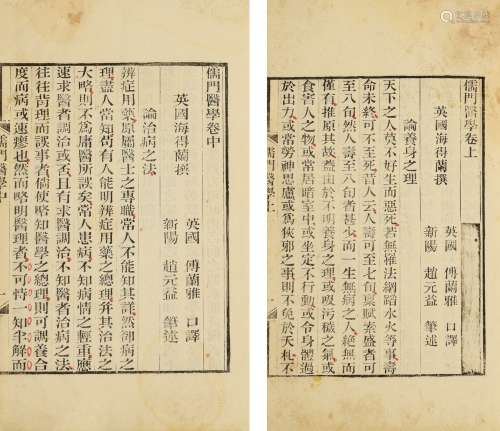 儒門醫學卷上
英國海得蘭撰
英國 傅蘭雅 口譯
新陽 趙元益 筆述
論養身之理
天下之人莫不好生而惡死若無罹法網蹈水火等事壽
命未終可不至死昔人云人壽可至七旬稟賦素盛者可
至八旬然人壽至八旬者甚少而一生無病之人絕無而
僅有推原其故蓋由於不明養身之理或吸污穢之氣或
食害人之物或常居暗室中或坐定不行動或令身體過
於出力或常勞神思慮或爲狹邪之事則不免於夭札不
儒門醫學上
儒門醫學卷中
英國海得蘭撰
英國 傅蘭雅 口譯
新陽 趙元益 筆述
論治病之法
辨症用藥原屬醫士之專職常人不能知其詳然卻病之
理盡人當知苟有人能明辨症用藥之總理幷其治法之
大略則不爲庸醫所誤矣常人患病不知病情之輕重應
速求醫者調治或否且有求醫調治不知醫者治病之法
往往背理而誤事者倘使略知醫學之總理則可調養合
度而病或速瘳也然而略明醫理者不可恃一知半解而
儒門醫學中